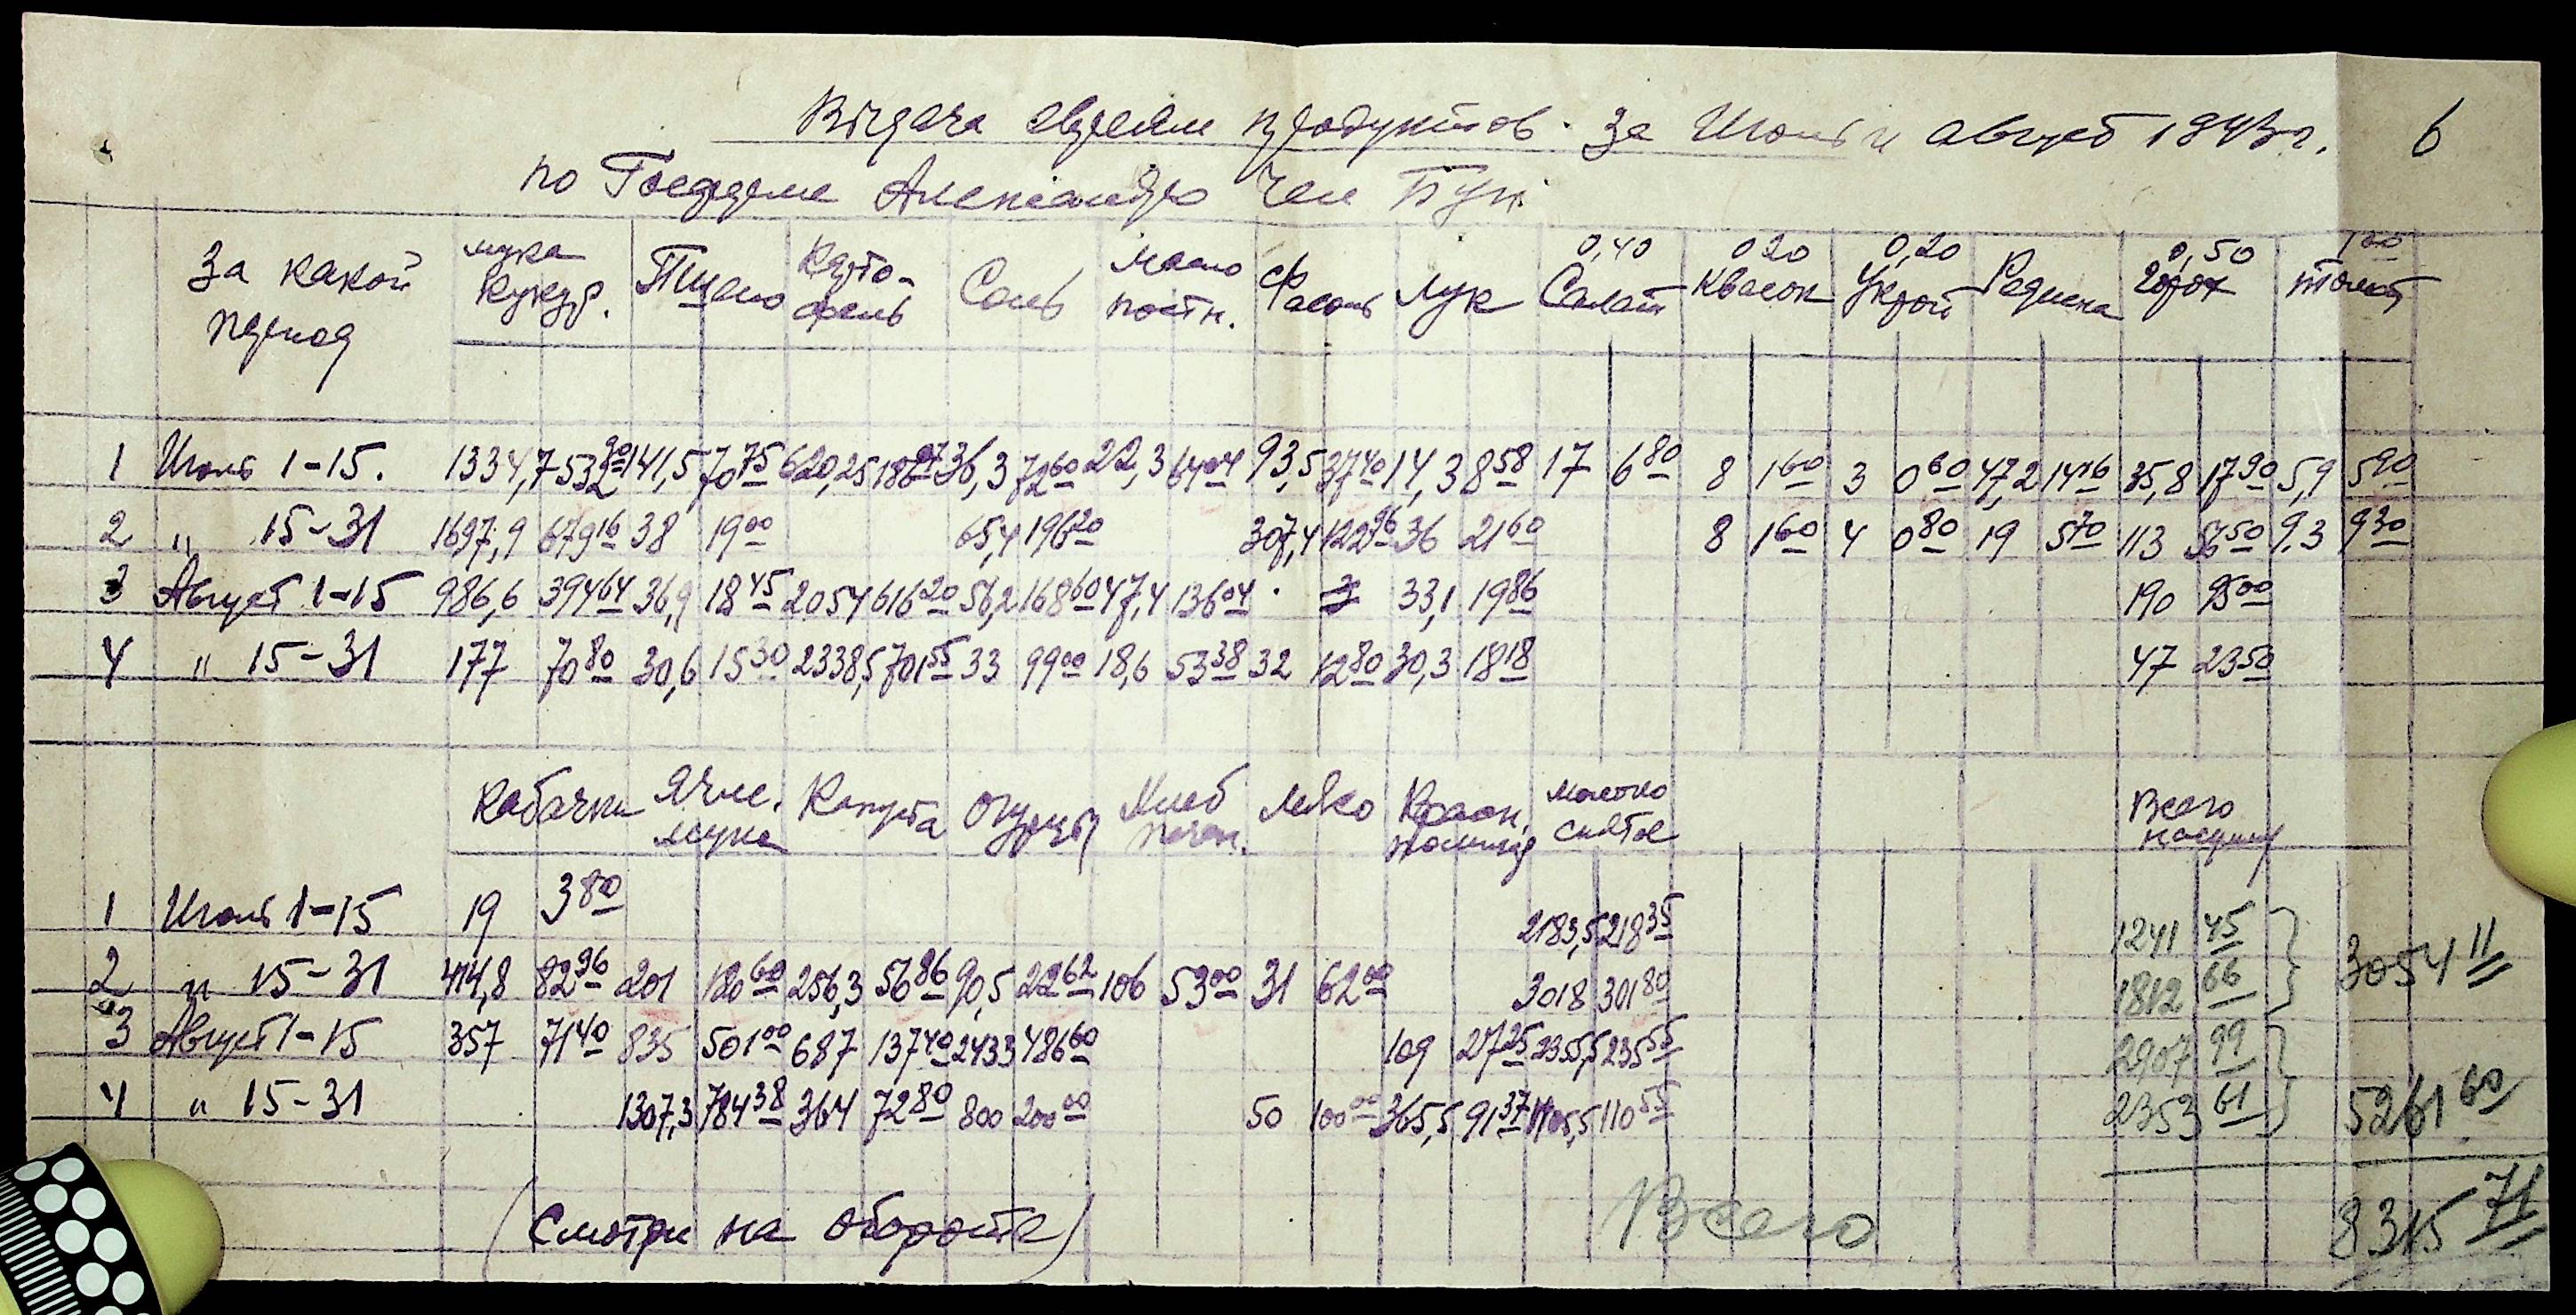 Выдача евреям продуктов за Июль и август 1943 г. 6
по Госферме Александро Чел Бун
За какой период мука кукур. Пшено Карто-фель Соль Масло постн. Фасоль Лук 0,40 Салат 0,20 Квасок 0,20 Укроп Редиска 0,50 горох 1 00 томат
1 Июль 1-15. 1334,7 532 90 141,5 70 75 620,25 186 07 36,3 72 60 22,3 64 04 93,5 37 40 14,3 8 58 17 6 80 8 1 60 3 0 60 47,2 14 16 35,8 17 90 5,9 5 90
2 " 15-31 1697,9 679 16 38 19 00 65,4 196 20 307,4 122 96 36 21 60 8 1 60 4 0 80 19 5 70 113 56 50 9.3 9 30
3 Август 1-15 986,6 394 64 36,9 18 45 2054 616 20 56,2 168 60 47,4 136 04 33,1 19 86 190 95 00
4 " 15-31 177 70 80 30,6 15 30 2338,5 701 55 33 99 00 18,6 53 38 32 12 80 30,3 18 18 47 23 50
Кабачки Ячме. мука Капуста Огурцы Хлеб печен. Мясо Квасок молоко снятое Всего
1 Июль 1-15 19 3 80 2183,5 218 35 1241 45
2 " 15-31 414,8 82 96 201 120 60 256,3 56 86 90,5 22 62 106 53 00 31 62 00 3018 301 80 1812 66 3054 11
3 Август 1-15 357 71 40 835 501 00 687 137 40 2433 486 60 109 27 25 2355,5 235 55 2907 99
4 " 15-31 1307,3 784 38 364 72 80 800 200 00 50 100 00 365,5 91 37 1105,5 110 55 2353 61 5261 60
(Смотри на обороте) Всего 8315 71